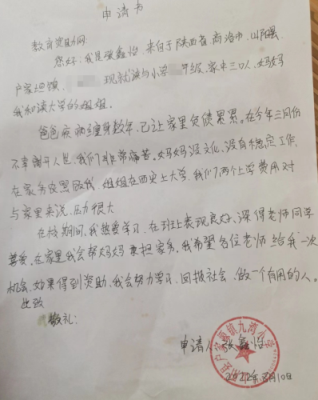 申请书
教育资助网
您好:我是张鑫怡,来自于陕西省商洛市山阳县
户家塬镇 现就读于小学 年级,家中三口人,妈妈
我和读大学的姐姐。
爸爸疾病缠身数年,已让家里负债累累,在今年三月份
不幸离开人世,我们非常痛苦,妈妈没文化,没有稳定工作,
在家务农照顾我,姐姐在西安上大学,我们两个上学费用对
与家里来说,压力很大
在校期间,我热爱学习,在班上表现良好,深得老师同学
喜爱,在家里我会帮妈妈承担家务,我希望各位老师给我一次
机会,如果得到资助,我会努力学习,回报社会,做一个有用的人。
此致
敬礼:
申请人:张鑫怡
10日